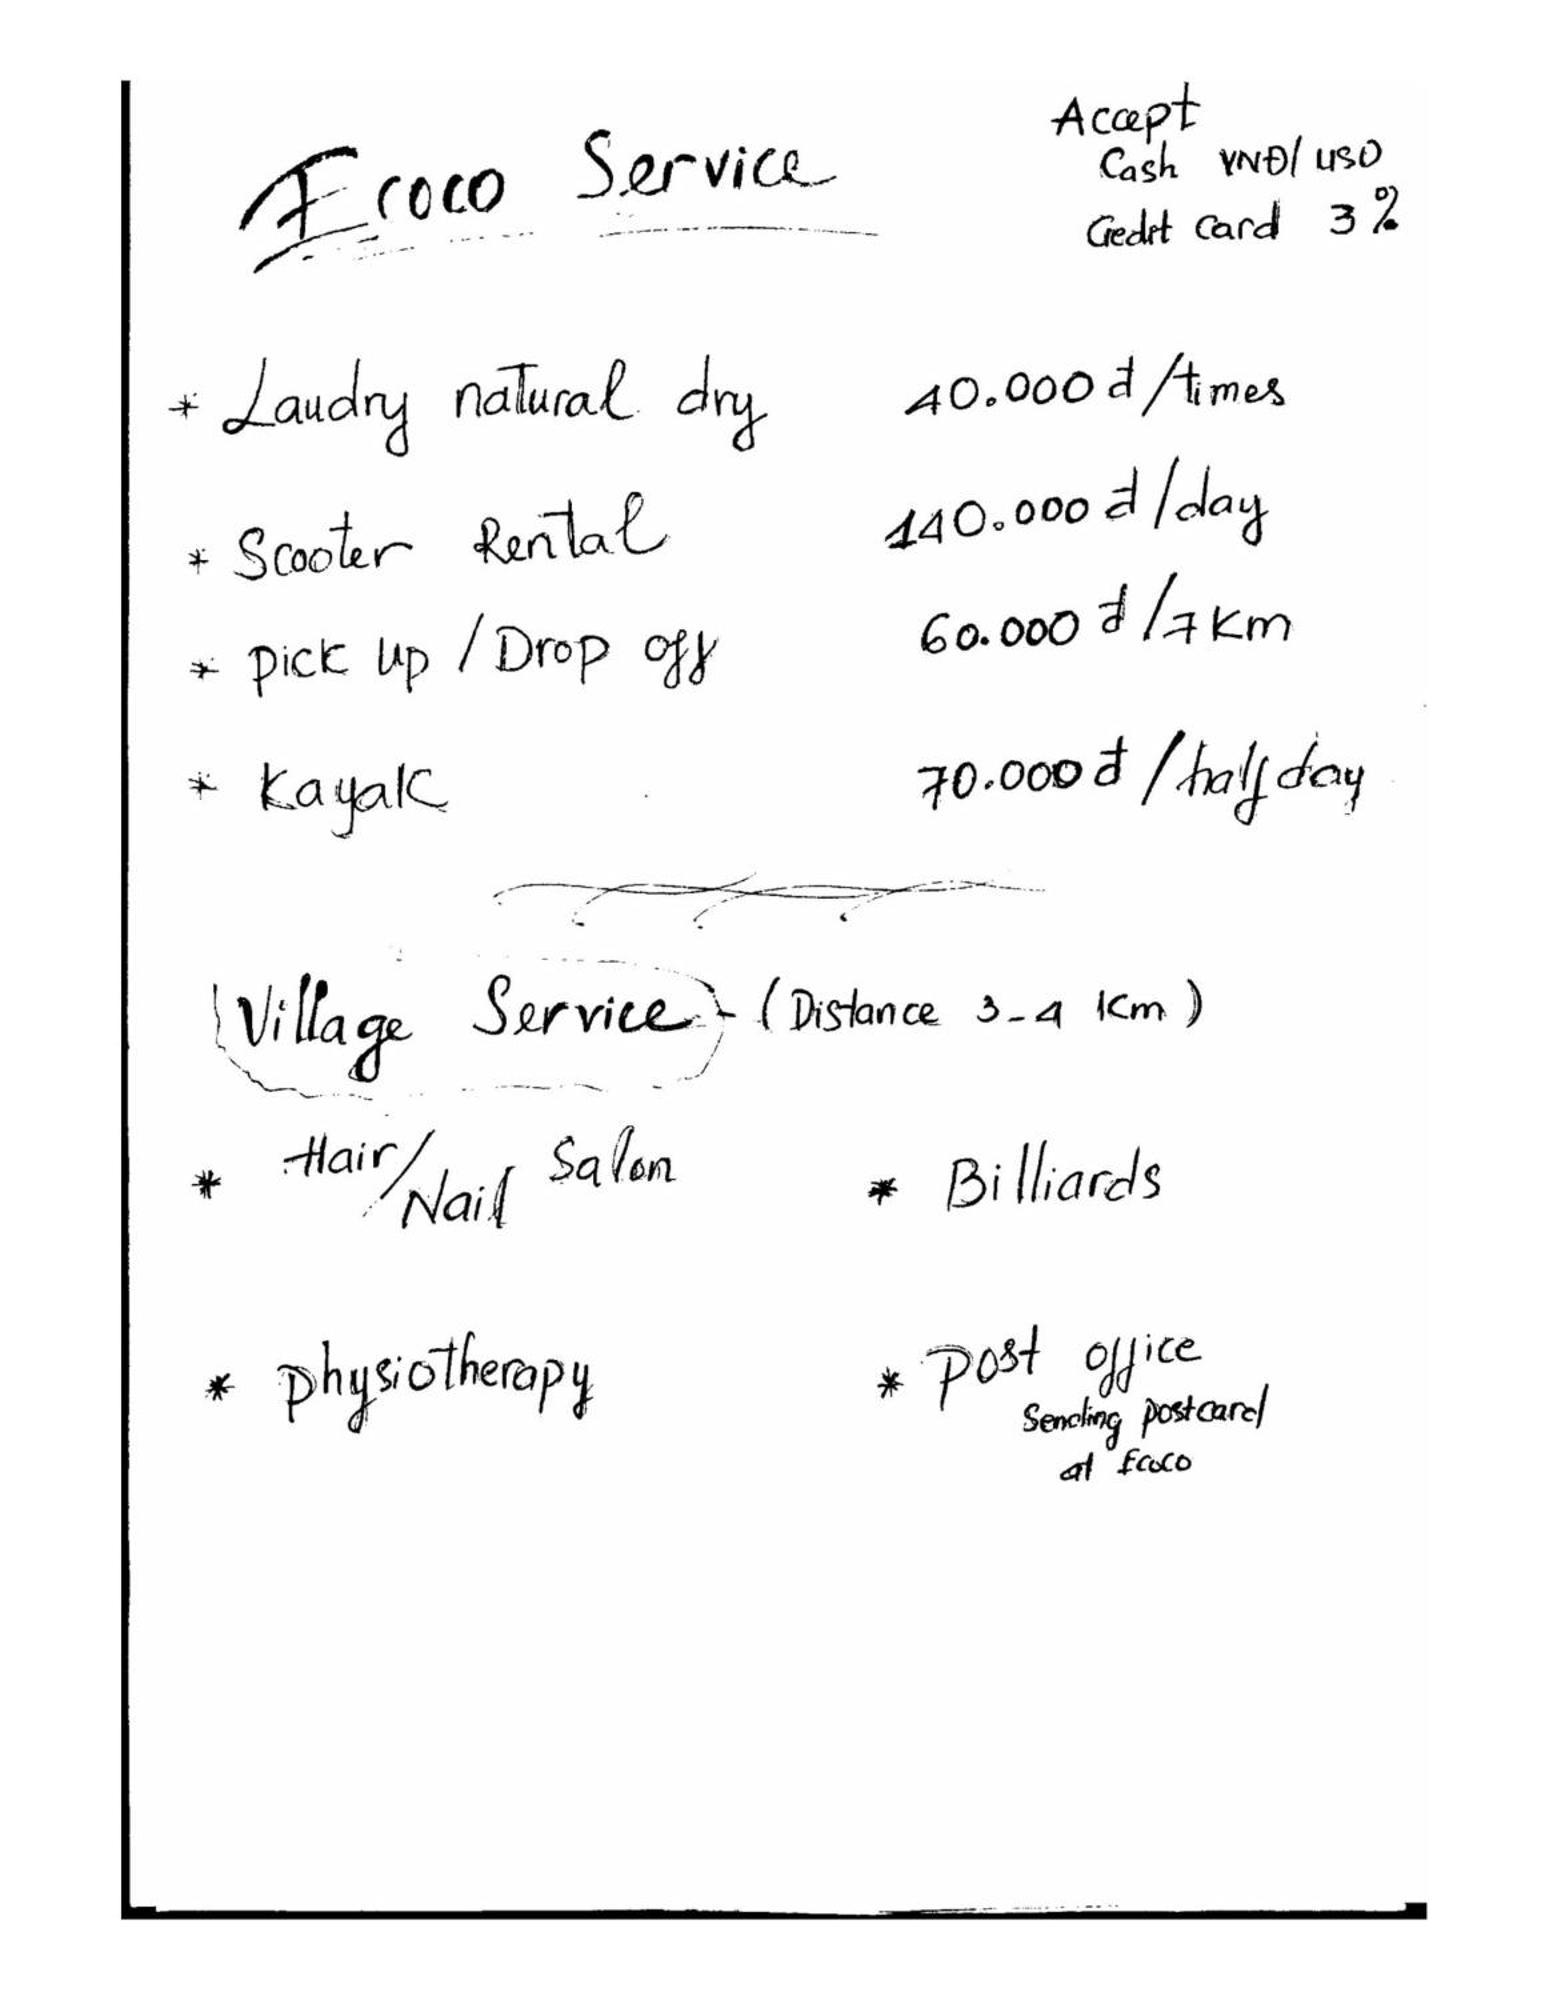 Ecoco Service
Accept
Cash VNĐ/USD
Credit Card 3%
* Laudry natural dry 40.000 đ/times
* Scooter Rental 140.000 đ/day
* Pick up / Drop off 60.000 đ/7 Km
* Kayak 70.000 đ/half day
Village Service - (Distance 3-4 Km)
* Hair/Nail Salon * Billiards
* Physiotherapy * Post office
Sending postcard
at Ecoco